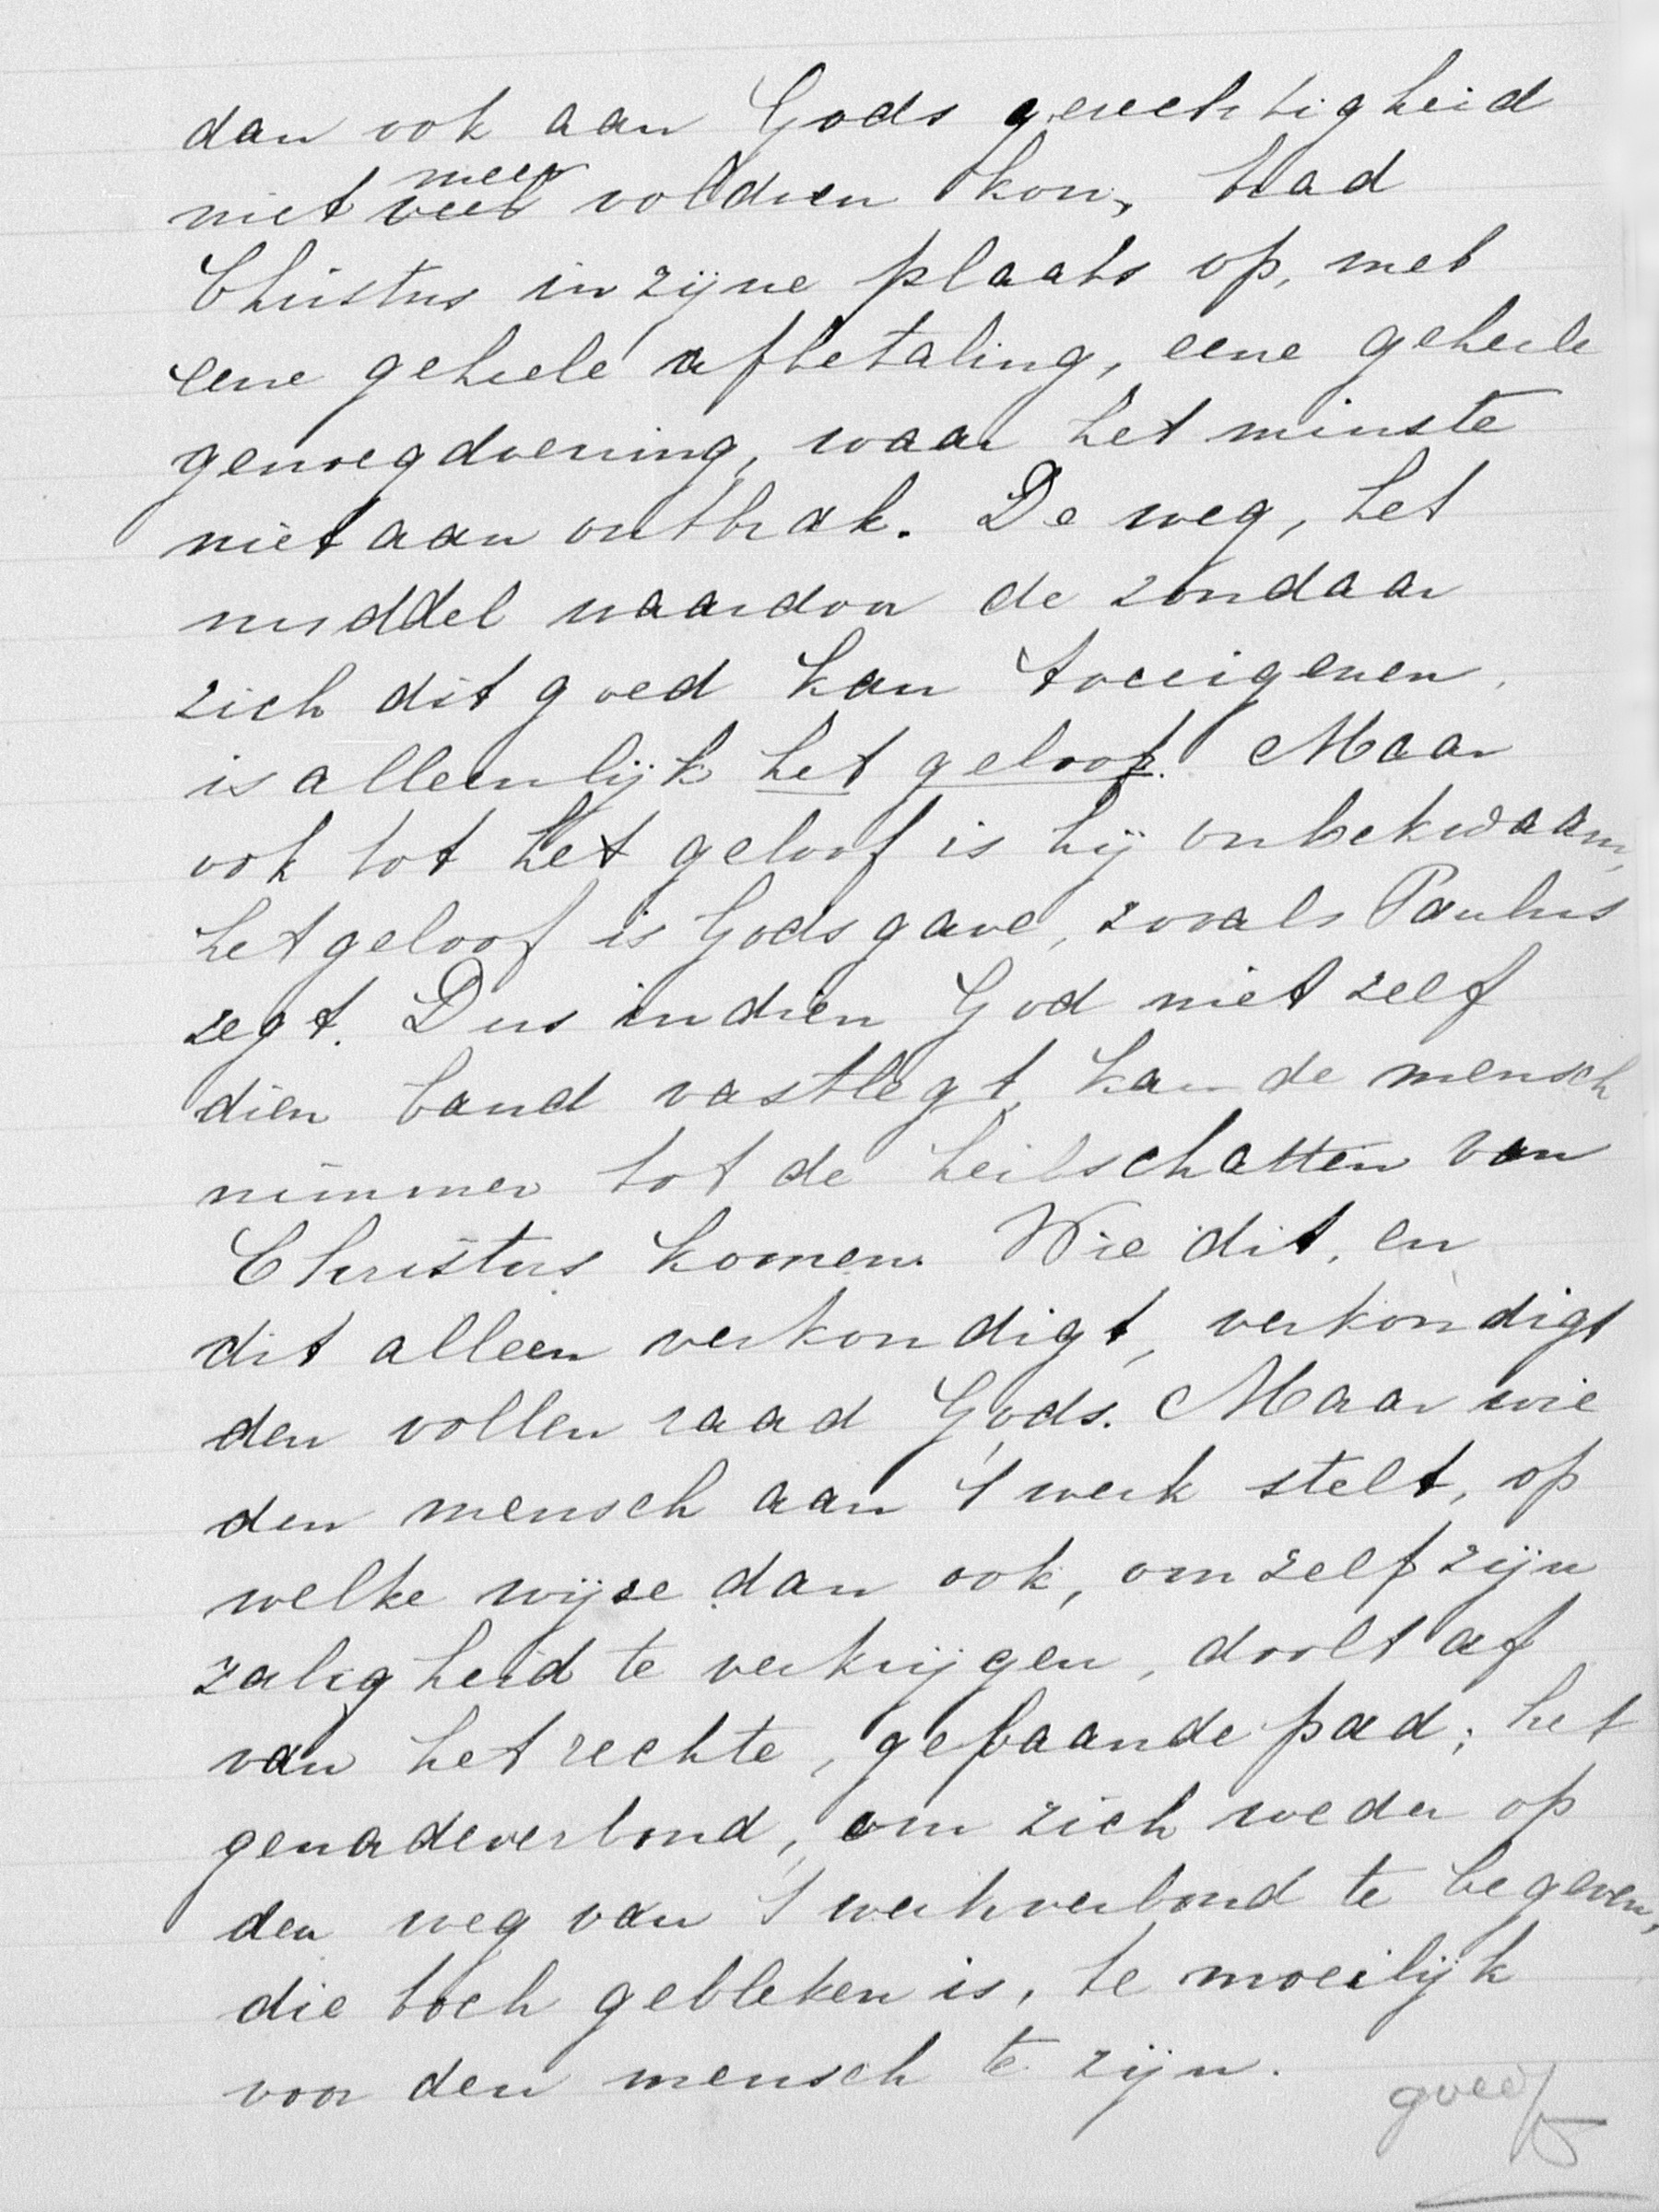 dan ook aan Gods gerechtigheid
meer
niet veel voldoen kon, trad
Christus in zijne plaats op, met
eene geheele afbetaling, eene geheele
genoegdoening, waar het minste
niet aan ontbrak. De weg, het
middel waardoor de zondaar
zich dit goed kan toeeigenen,
is alleenlijk het geloof. Maar
ook tot het geloof is hij onbekwaam,
het geloof is Gods gave, zooals Paulus
zegt. Dus indien God niet zelf
dien band vastlegt, kan de mensch
nimmer tot de heilschatten van
Christus komen. Wie dit, en
dit alleen verkondigt, verkondigt
den vollen raad Gods. Maar wie
den mensch aan 't werk stelt, op
welke wijze dan ook, om zelf zijn
zaligheid te verkrijgen, doolt af
van het rechte, gebaande pad; het
genadeverbond, om zich weder op
den weg van 't werkverbond te begeven,
die toch gebleken is, te moeilijk
voor den mensch te zijn.
goed